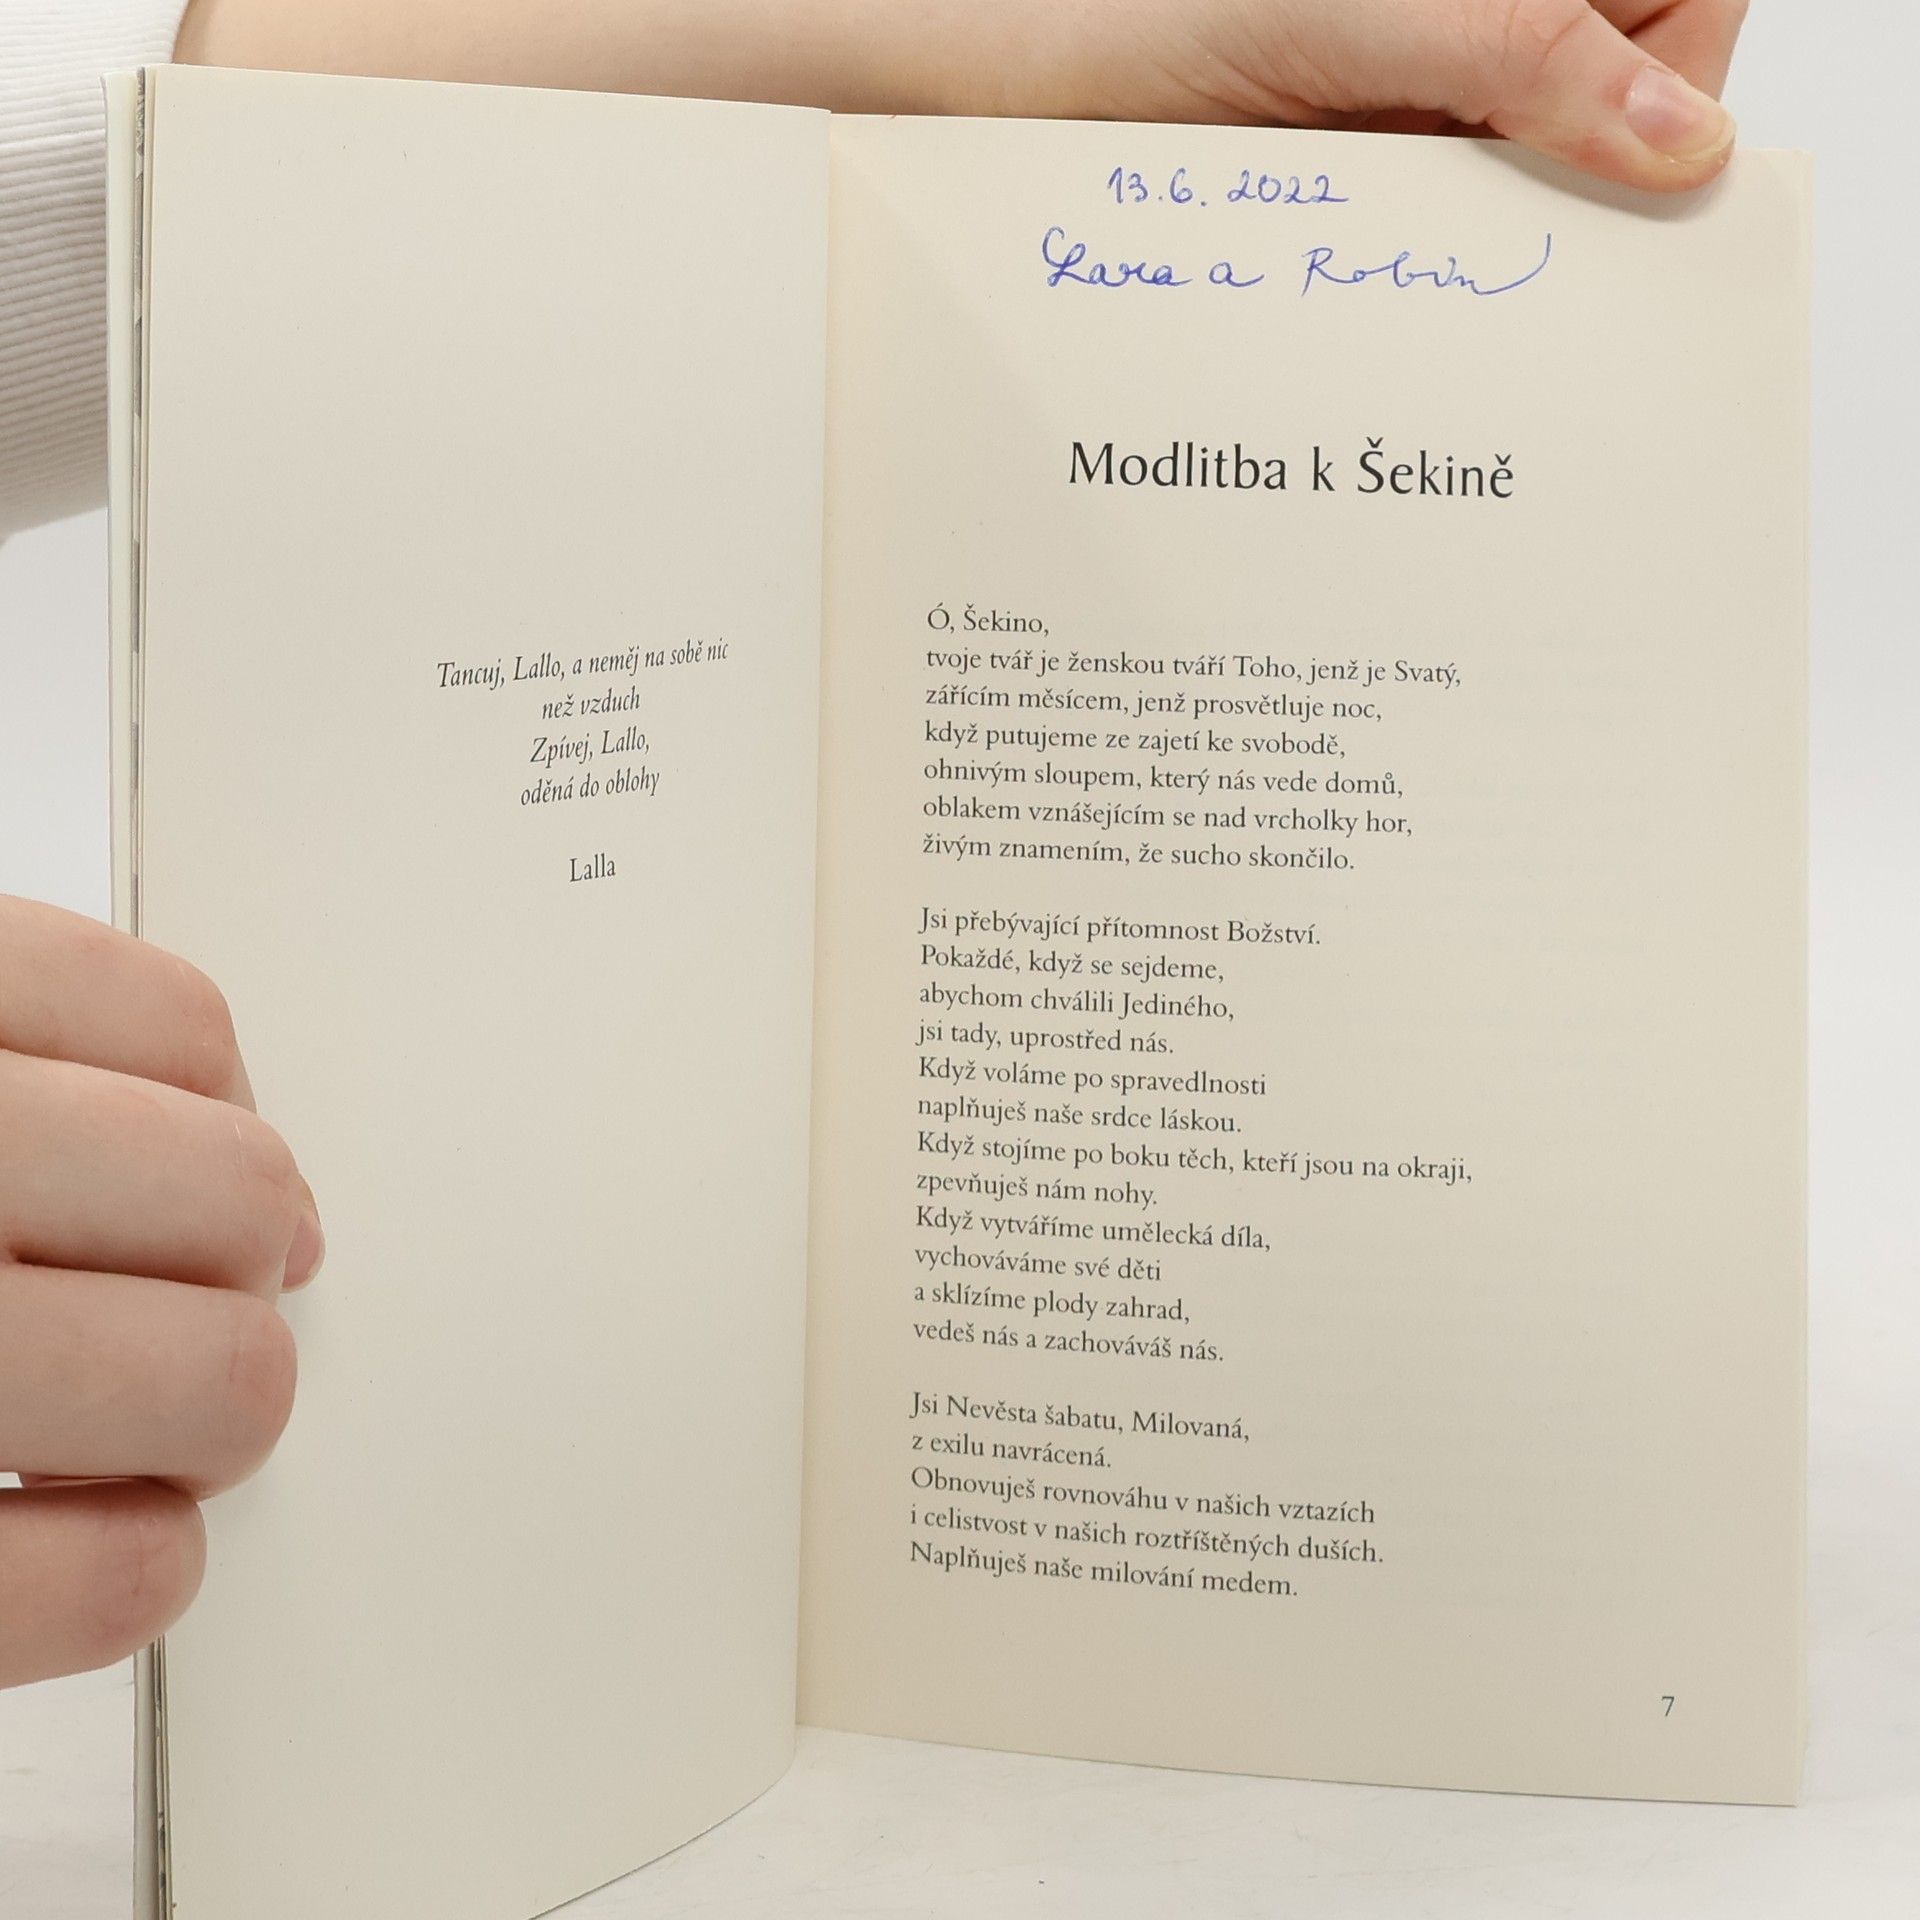 Tancuj, Lallo, a neměj na sobě nic
než vzduch
Zpívej, Lallo,
oděná do oblohy
Lalla
13.6. 2022
Lara a Robin
Modlitba k Šekině
Ó, Šekino,
tvoje tvář je ženskou tváří Toho, jenž je Svatý,
zářícím měsícem, jenž prosvětluje noc,
když putujeme ze zajetí ke svobodě,
ohnivým sloupem, který nás vede domů,
oblakem vznášejícím se nad vrcholky hor,
živým znamením, že sucho skončilo.
Jsi přebývající přítomnost Božství.
Pokaždé, když se sejdeme,
abychom chválili Jediného,
jsi tady, uprostřed nás.
Když voláme po spravedlnosti
naplňuješ naše srdce láskou.
Když stojíme po boku těch, kteří jsou na okraji,
zpevňuješ nám nohy.
Když vytváříme umělecká díla,
vychováváme své děti
a sklízíme plody zahrad,
vedeš nás a zachováváš nás.
Jsi Nevěsta šabatu, Milovaná,
z exilu navrácená.
Obnovuješ rovnováhu v našich vztazích
i celistvost v našich roztříštěných duších.
Naplňuješ naše milování medem.
7